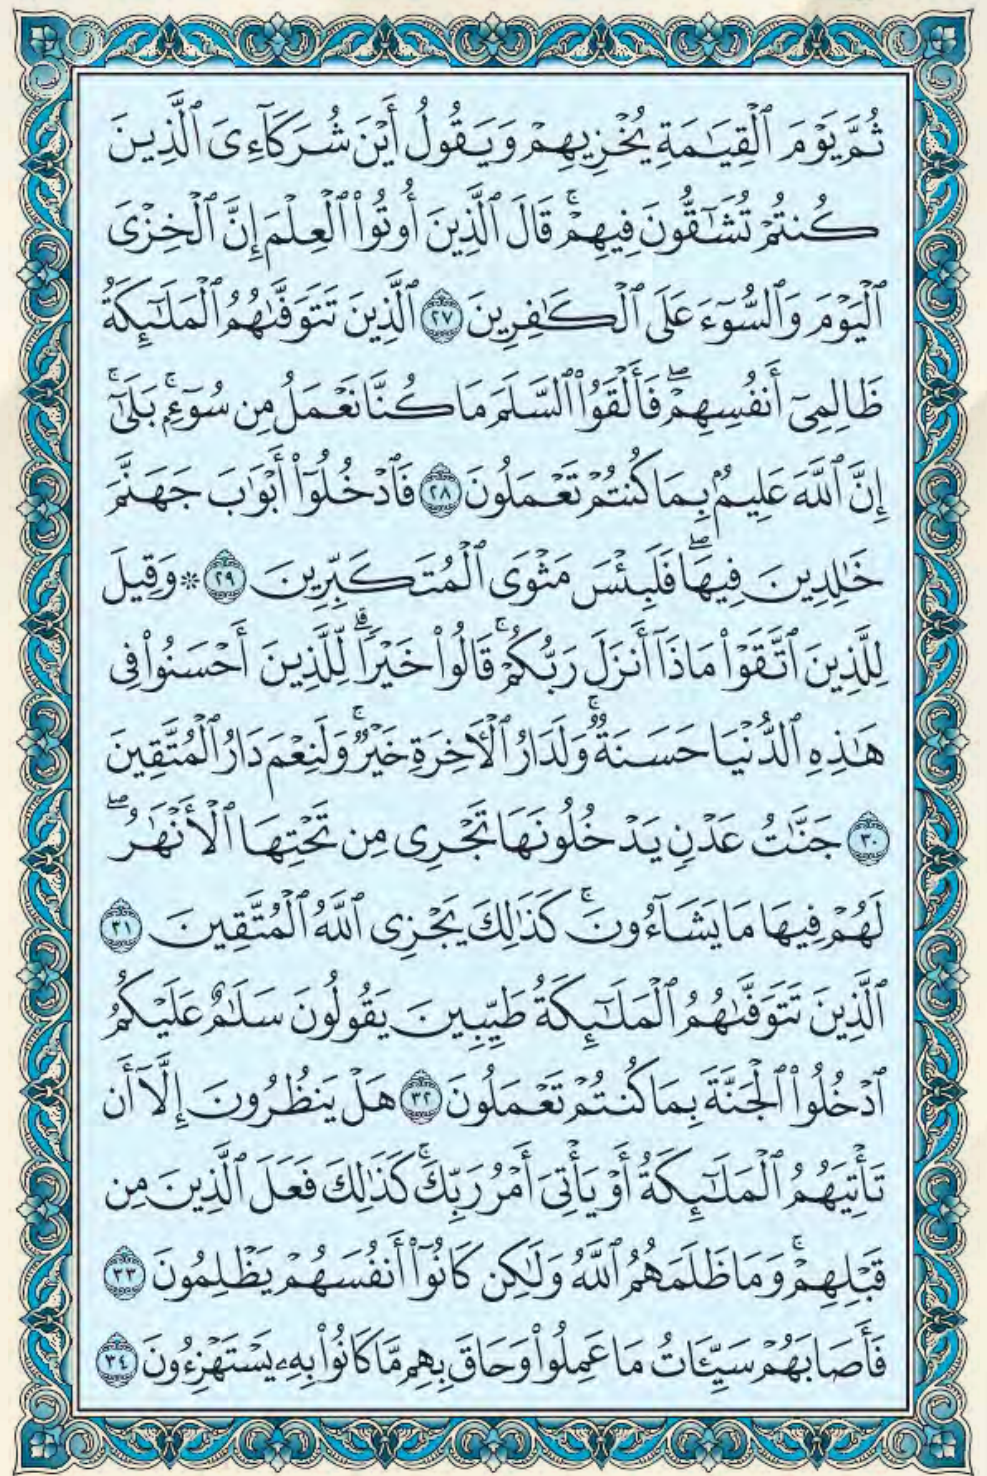 ثُمَّ يَوْمَ ٱلْقِيَـٰمَةِ يُخْزِيهِمْ وَيَقُولُ أَيْنَ شُرَكَآءِىَ ٱلَّذِينَ
كُنتُمْ تُشَـٰٓقُّونَ فِيهِمْ ۚ قَالَ ٱلَّذِينَ أُوتُوا۟ ٱلْعِلْمَ إِنَّ ٱلْخِزْىَ
ٱلْيَوْمَ وَٱلسُّوٓءَ عَلَى ٱلْكَـٰفِرِينَ ٢٧ ٱلَّذِينَ تَتَوَفَّىٰهُمُ ٱلْمَلَـٰٓئِكَةُ
ظَالِمِىٓ أَنفُسِهِمْ ۖ فَأَلْقَوُا۟ ٱلسَّلَمَ مَا كُنَّا نَعْمَلُ مِن سُوٓءٍۭ ۚ بَلَىٰٓ ۚ
إِنَّ ٱللَّهَ عَلِيمٌۢ بِمَا كُنتُمْ تَعْمَلُونَ ٢٨ فَٱدْخُلُوٓا۟ أَبْوَٰبَ جَهَنَّمَ
خَـٰلِدِينَ فِيهَا ۖ فَلَبِئْسَ مَثْوَى ٱلْمُتَكَبِّرِينَ ٢٩ ۞ وَقِيلَ
لِلَّذِينَ ٱتَّقَوْا۟ مَاذَآ أَنزَلَ رَبُّكُمْ ۚ قَالُوا۟ خَيْرًا ۗ لِّلَّذِينَ أَحْسَنُوا۟ فِى
هَـٰذِهِ ٱلدُّنْيَا حَسَنَةٌ ۚ وَلَدَارُ ٱلْـَٔاخِرَةِ خَيْرٌ ۚ وَلَنِعْمَ دَارُ ٱلْمُتَّقِينَ
٣٠ جَنَّـٰتُ عَدْنٍ يَدْخُلُونَهَا تَجْرِى مِن تَحْتِهَا ٱلْأَنْهَـٰرُ ۖ
لَهُمْ فِيهَا مَا يَشَآءُونَ ۚ كَذَٰلِكَ يَجْزِى ٱللَّهُ ٱلْمُتَّقِينَ ٣١
ٱلَّذِينَ تَتَوَفَّىٰهُمُ ٱلْمَلَـٰٓئِكَةُ طَيِّبِينَ يَقُولُونَ سَلَـٰمٌ عَلَيْكُمُ
ٱدْخُلُوا۟ ٱلْجَنَّةَ بِمَا كُنتُمْ تَعْمَلُونَ ٣٢ هَلْ يَنظُرُونَ إِلَّآ أَن
تَأْتِيَهُمُ ٱلْمَلَـٰٓئِكَةُ أَوْ يَأْتِىَ أَمْرُ رَبِّكَ ۚ كَذَٰلِكَ فَعَلَ ٱلَّذِينَ مِن
قَبْلِهِمْ ۚ وَمَا ظَلَمَهُمُ ٱللَّهُ وَلَـٰكِن كَانُوٓا۟ أَنفُسَهُمْ يَظْلِمُونَ ٣٣
فَأَصَابَهُمْ سَيِّـَٔاتُ مَا عَمِلُوا۟ وَحَاقَ بِهِم مَّا كَانُوا۟ بِهِۦ يَسْتَهْزِءُونَ ٣٤